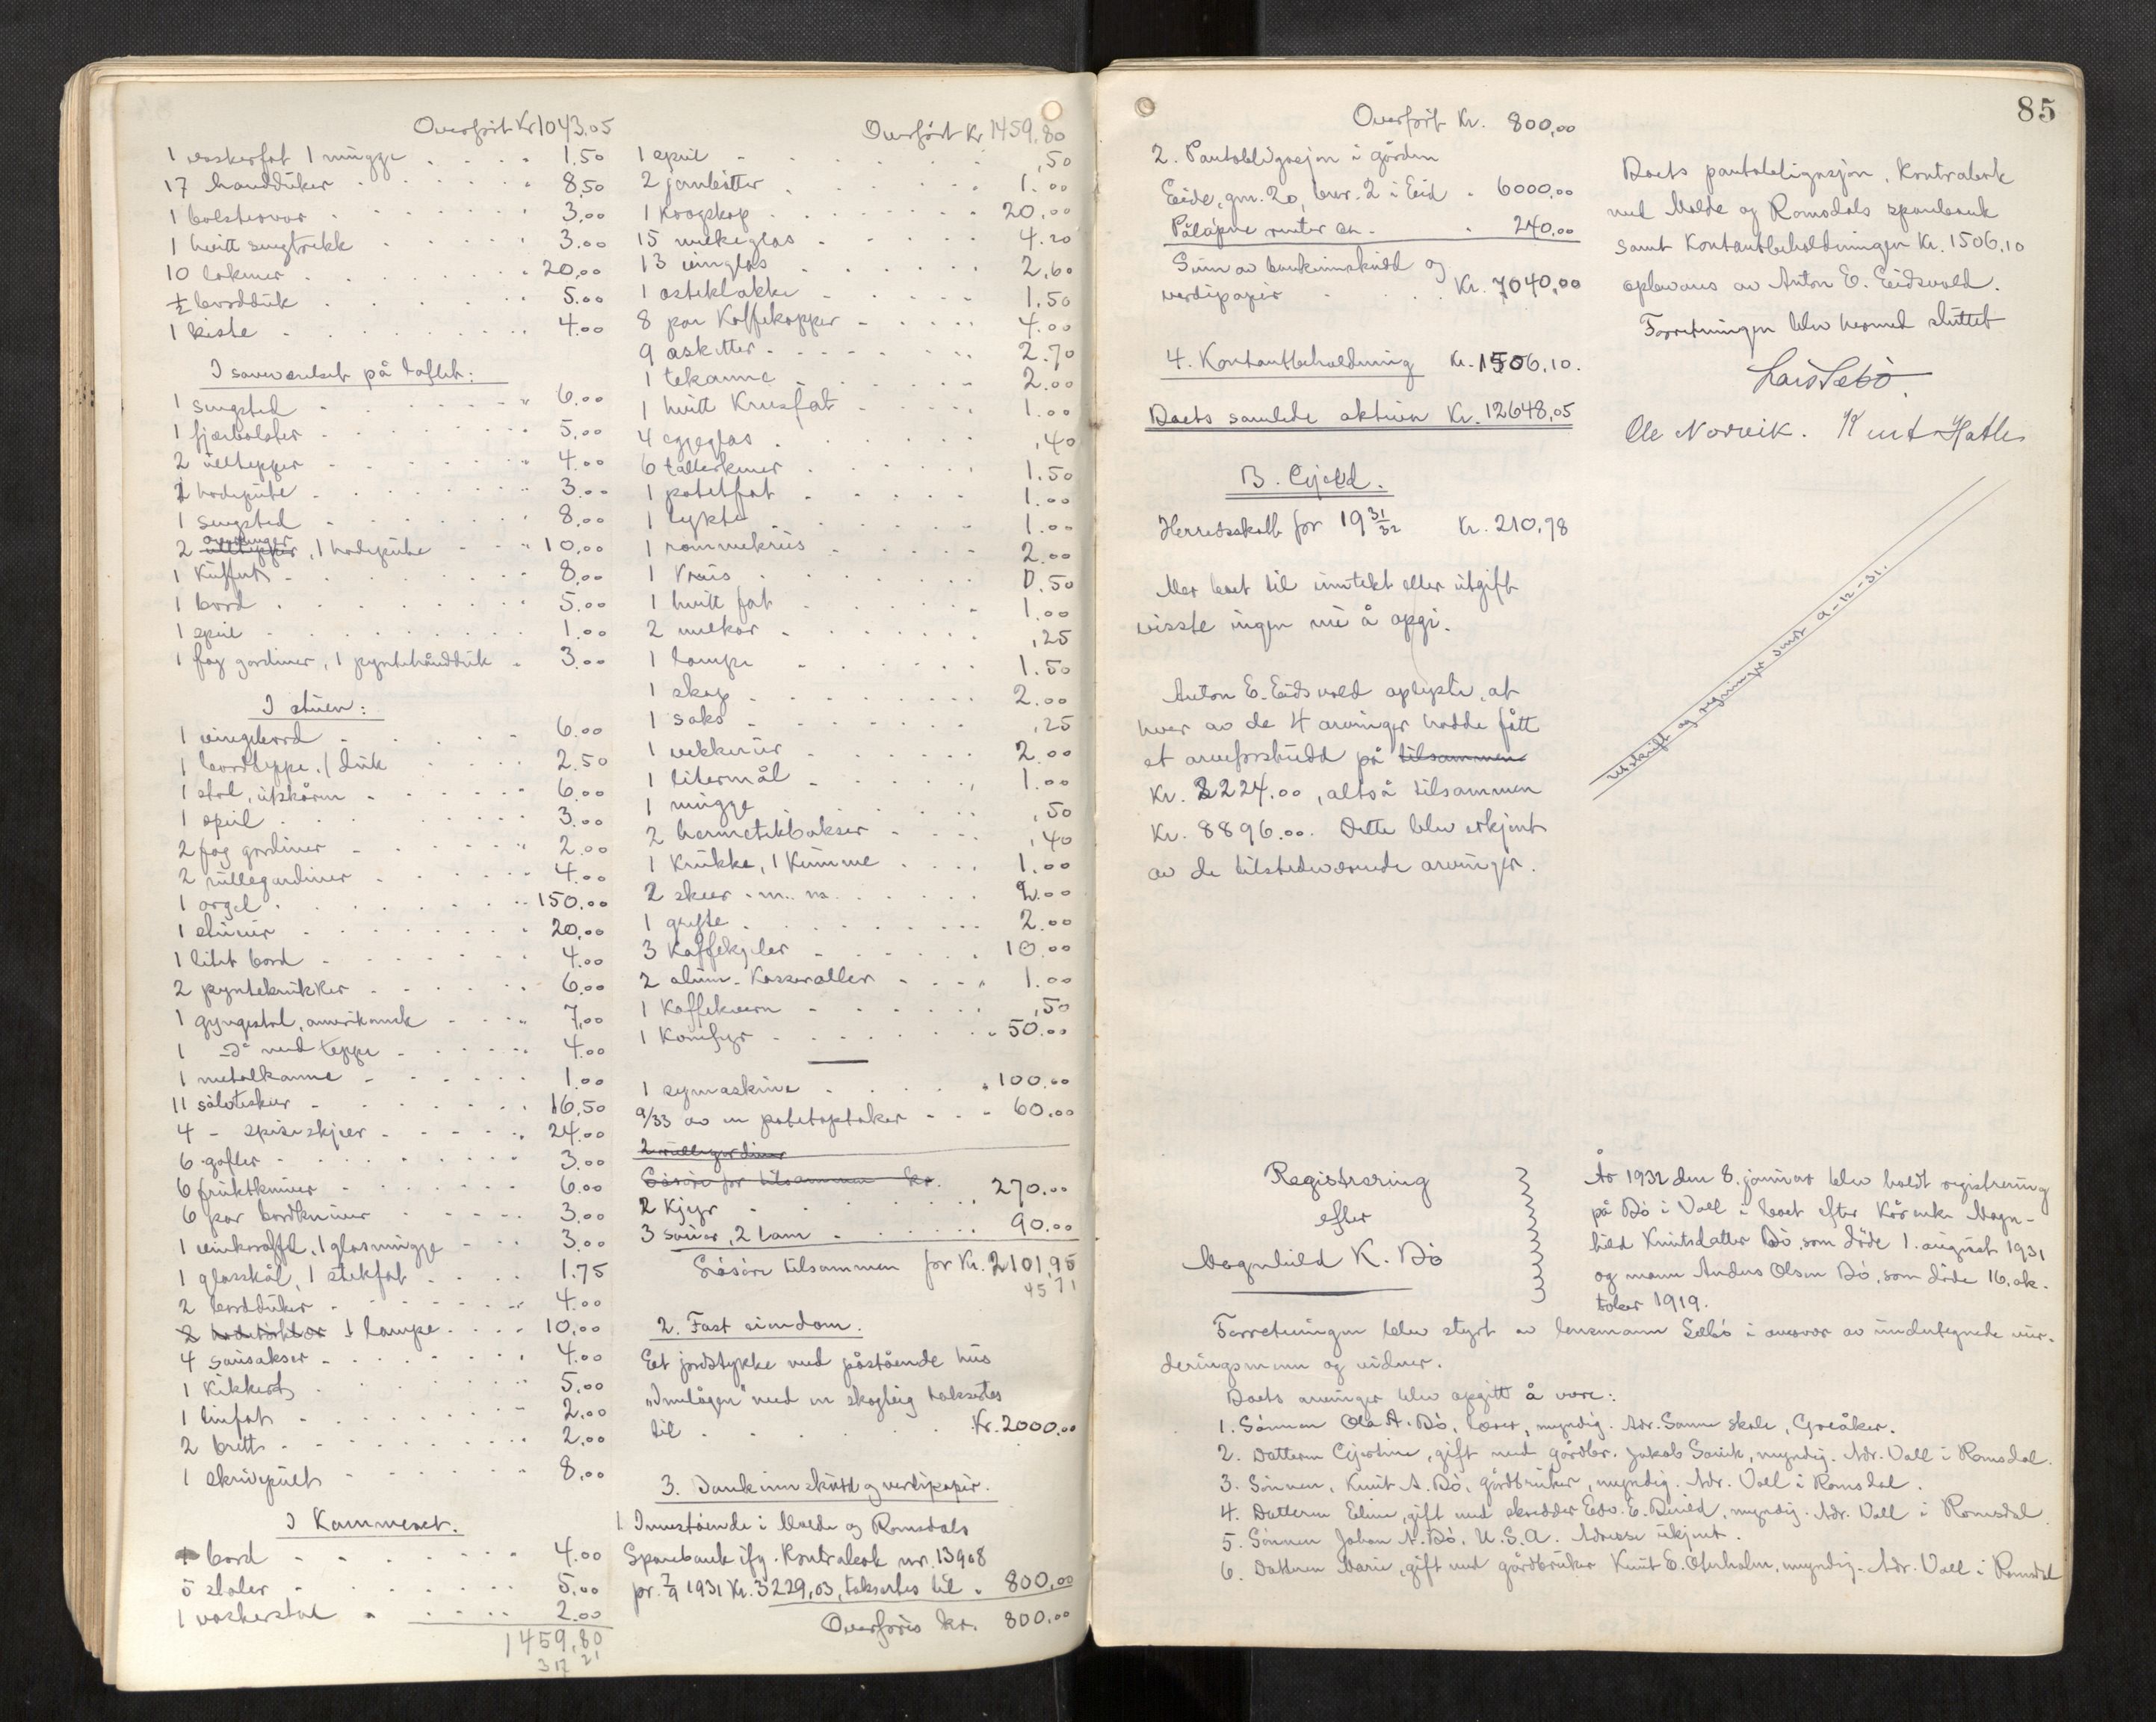 Overført Kr 1043.05
1 vaskerfat 1 mugge 1,50
17 handduker 8,50
1 bolstervar 3,00
1 hvitt sengtrekk 3.00
10 lakener 20,00
1/2 bordduk 5.00
1 kiste 4.00
I soveværelset på loftet:
1 sengsted 6.00
1 fjærbolster 5,00
2 ulltepper 4.00
1 hodepute 3.00
1 sengsted 8.00
2 ulltepper, 1 hodepute 10,00
1 Kuffert 8,00
1 bord 5.00
1 speil 1.00
1 fag gardiner, 1 pyntehåndduk 3.00
I stuen:
1 vingebord 6.00
1 bordteppe, 1 duk 2.50
1 stol, utskåren 6.00
1 speil 3.00
2 fag gardiner 2.00
2 rullegardiner 4.00
1 orgel 150.00
1 stueur 20,00
1 litet bord 4.00
2 pyntekrukker 6.00
1 gyngestol, amerikansk 7,00
1 -d° med teppe 4.00
1 metalkanne 1.00
11 sølvteskeer 16,50
4 - spiseskjeer 24.00
6 gafler 3.00
6 fruktkniver 6.00
6 par bordkniver 3.00
1 vinkaraffel, 1 glasmugge 3.00
1 glasskål, 1 stekfat 1.75
2 bordduker 4.00
1 lampe 10.00
4 sausakser 4.00
1 Kikkert 5.00
1 linfat 2.00
2 brett 2.00
1 skrivepult 8,00
I Kammerset.
bord 4.00
5 stoler 5.00
1 vaskerstol 2.00
1459,80
Overført Kr 1459,80
1 speil ,50
2 jernbøtter 1.00
1 Krogskap 20,00
15 melkeglas 4.20
13 vinglas 2,60
1 osteklokke 1,50
8 par Kaffekopper 4.00
9 asketter 2.70
1 tekanne 2.00
1 hvitt Krusfat 1.00
4 eggeglas ,40
6 tallerkener 1.50
1 potetfat 1.00
1 lykte 1.00
1 rømmekrus 2.00
1 Krus 0.50
1 hvitt fat 1.00
2 melkar ,25
1 lampe 1.50
1 skap 2.00
1 saks ,25
1 vekkerur 2.00
1 litermål 1.00
1 mugge ,50
2 hermetikbokser ,40
1 Krukke, 1 Kumme 1.00
2 skeer m. m. 2.00
1 gryte 2.00
3 Kaffekjeler 10.00
2 alum. Kasseroller 1.00
1 Kaffekvern ,50
1 Komfyr 50.00
1 symaskine 100.00
9/33 av en potetoptaker 60.00
2 rullegardiner
Løsøre for tilsammen Kr.
2 Kjyr 270.00
3 sauer, 2 lam 90.00
Løsøre tilsammen for Kr. 2101,95
2. Fast eiendom.
Eet jordstykke med påstående hus
"Innlågen" med en skogteig takseres
til Kr. 2000.00
3. Bankinnskudd og verdipapir.
1 Innestående i Molde og Romsdals
Sparebank ifg. Kontrabok nr. 13908
pr. 7/9 1931 Kr. 3229,03, taksertes til 800,00
Overføres kr. 800.00
85
Overført Kr. 800,00
2. Pantobligasjon i gården
Eide, gnr. 20, bnr. 2 i Eid 6000,00
Påløpne renter ca. 240.00
Sum av bankinnskudd og
verdipapir Kr. 7040,00
4. Kontantbeholdning Kr. 1506.10.
Boets samlede aktiva Kr. 12648,05
B. Gjeld.
Herredsskatt for 19 31/32 Kr. 210,78
Mer boet til inntekt eller utgift
visste ingen nu å opgi.
Anton E. Eidsvold oplyste, at
hver av de 4 arvinger hadde fått
et arveforskudd på tilsammen
Kr. 2224.00, altså tilsammen
Kr. 8896.00. Dette blev erkjent
av de tilstedeværende arvinger.
Boets pantobligasjon, Kontrabok
med Molde og Romsdals sparebank
samt Kontantbeholdningen Kr. 1506,10
opbevares av Anton E. Eidsvold.
Forretningen blev hermed sluttet
Lars Sæbø.
Ole Norvik. Knut Hatle
Utskrift og regninger sendt 9-12-31.
Registrering
efter
Magnhild K. Bø
År 1932 den 8. januar blev holdt registrering
på Bø i Voll i boet efter Kårenke Magn-
hild Knutsdatter Bø, som døde 1. august 1931
og mann Anders Olsen Bø, som døde 16. ok-
tober 1919.
Forretningen blev styrt av lensmann Sæbø i overvær av undertegnede vur-
deringsmenn og vidner.
Boets arvinger blev opgitt å være:
1. Sønnen Ola A. Bø, lærer, myndig. Adr. Sanne skole, Greåker.
2. Datteren Gjertine, gift med gårdbr. Jakob Sanik, myndig. Adr. Voll i Romsdal.
3. Sønnen, Knut A. Bø, gårdbruker, myndig. Adr. Voll i Romsdal.
4. Datteren Eline, gift med skredder Edv. E. Beuild, myndig. Adr. Voll i Romsdal
5. Sønnen Johan A. Bø, U.S.A. Adresse ukjent.
6. Datteren Marie, gift med gårdbruker Knut E. Oterholm, myndig. Adr. Voll i Romsdal